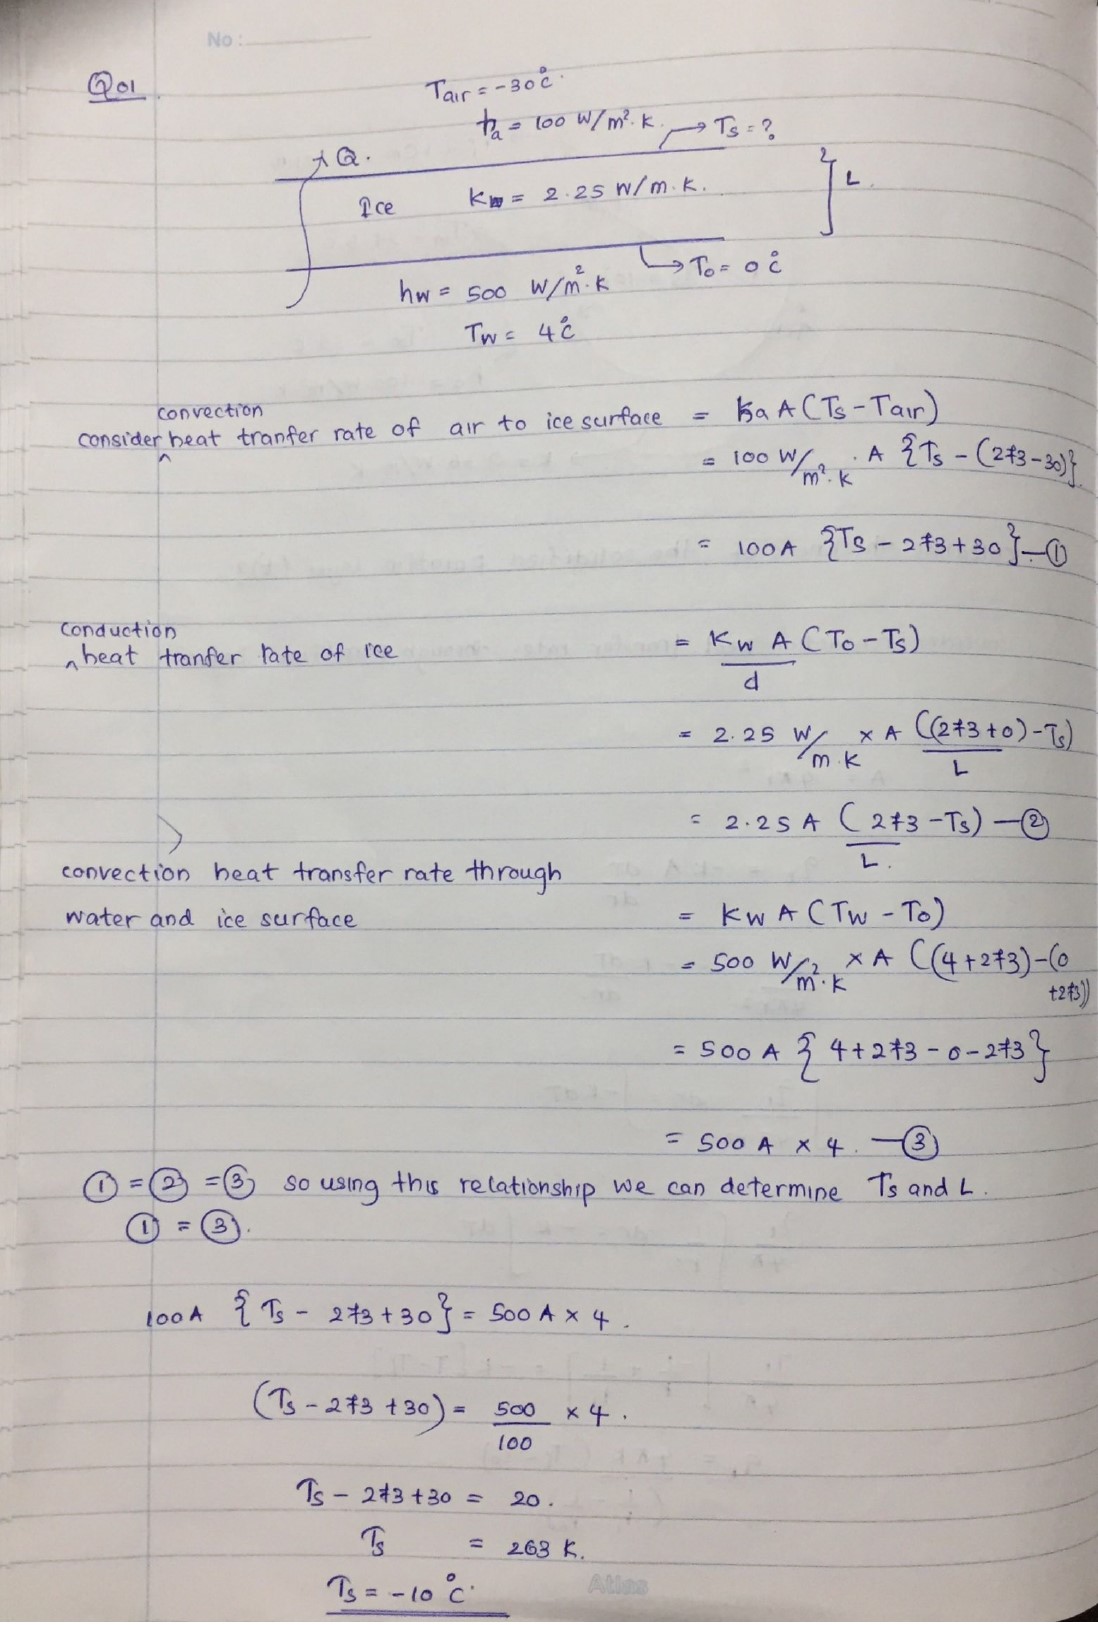 No:
Q01
Tair = -30°C.
ha = 100 W/m².K → Ts = ?
Q.
Ice Kw = 2.25 W/m.K. L.
→ To = 0°C
hw = 500 W/m².K
Tw = 4°C
convection
consider heat tranfer rate of air to ice surface = ha A (Ts - Tair)
= 100 W/m².K . A {Ts - (273-30)}
= 100A {Ts - 273+30} —①
conduction
heat tranfer rate of ice = Kw A (To - Ts)
d
= 2.25 W/m.K × A ((273+0)-Ts)
L
= 2.25 A (273-Ts) —②
L.
convection heat transfer rate through
water and ice surface = KwA (Tw - To)
= 500 W/m².K × A ((4+273)-(0
+273))
= 500 A { 4+273-0-273}
= 500 A × 4. —③
① = ② = ③ so using this relationship we can determine Ts and L.
① = ③.
100A { Ts - 273+30} = 500 A × 4.
(Ts - 273 +30) = 500 × 4.
100
Ts - 273+30 = 20.
Ts = 263 K.
Ts = -10°C.
Atlas